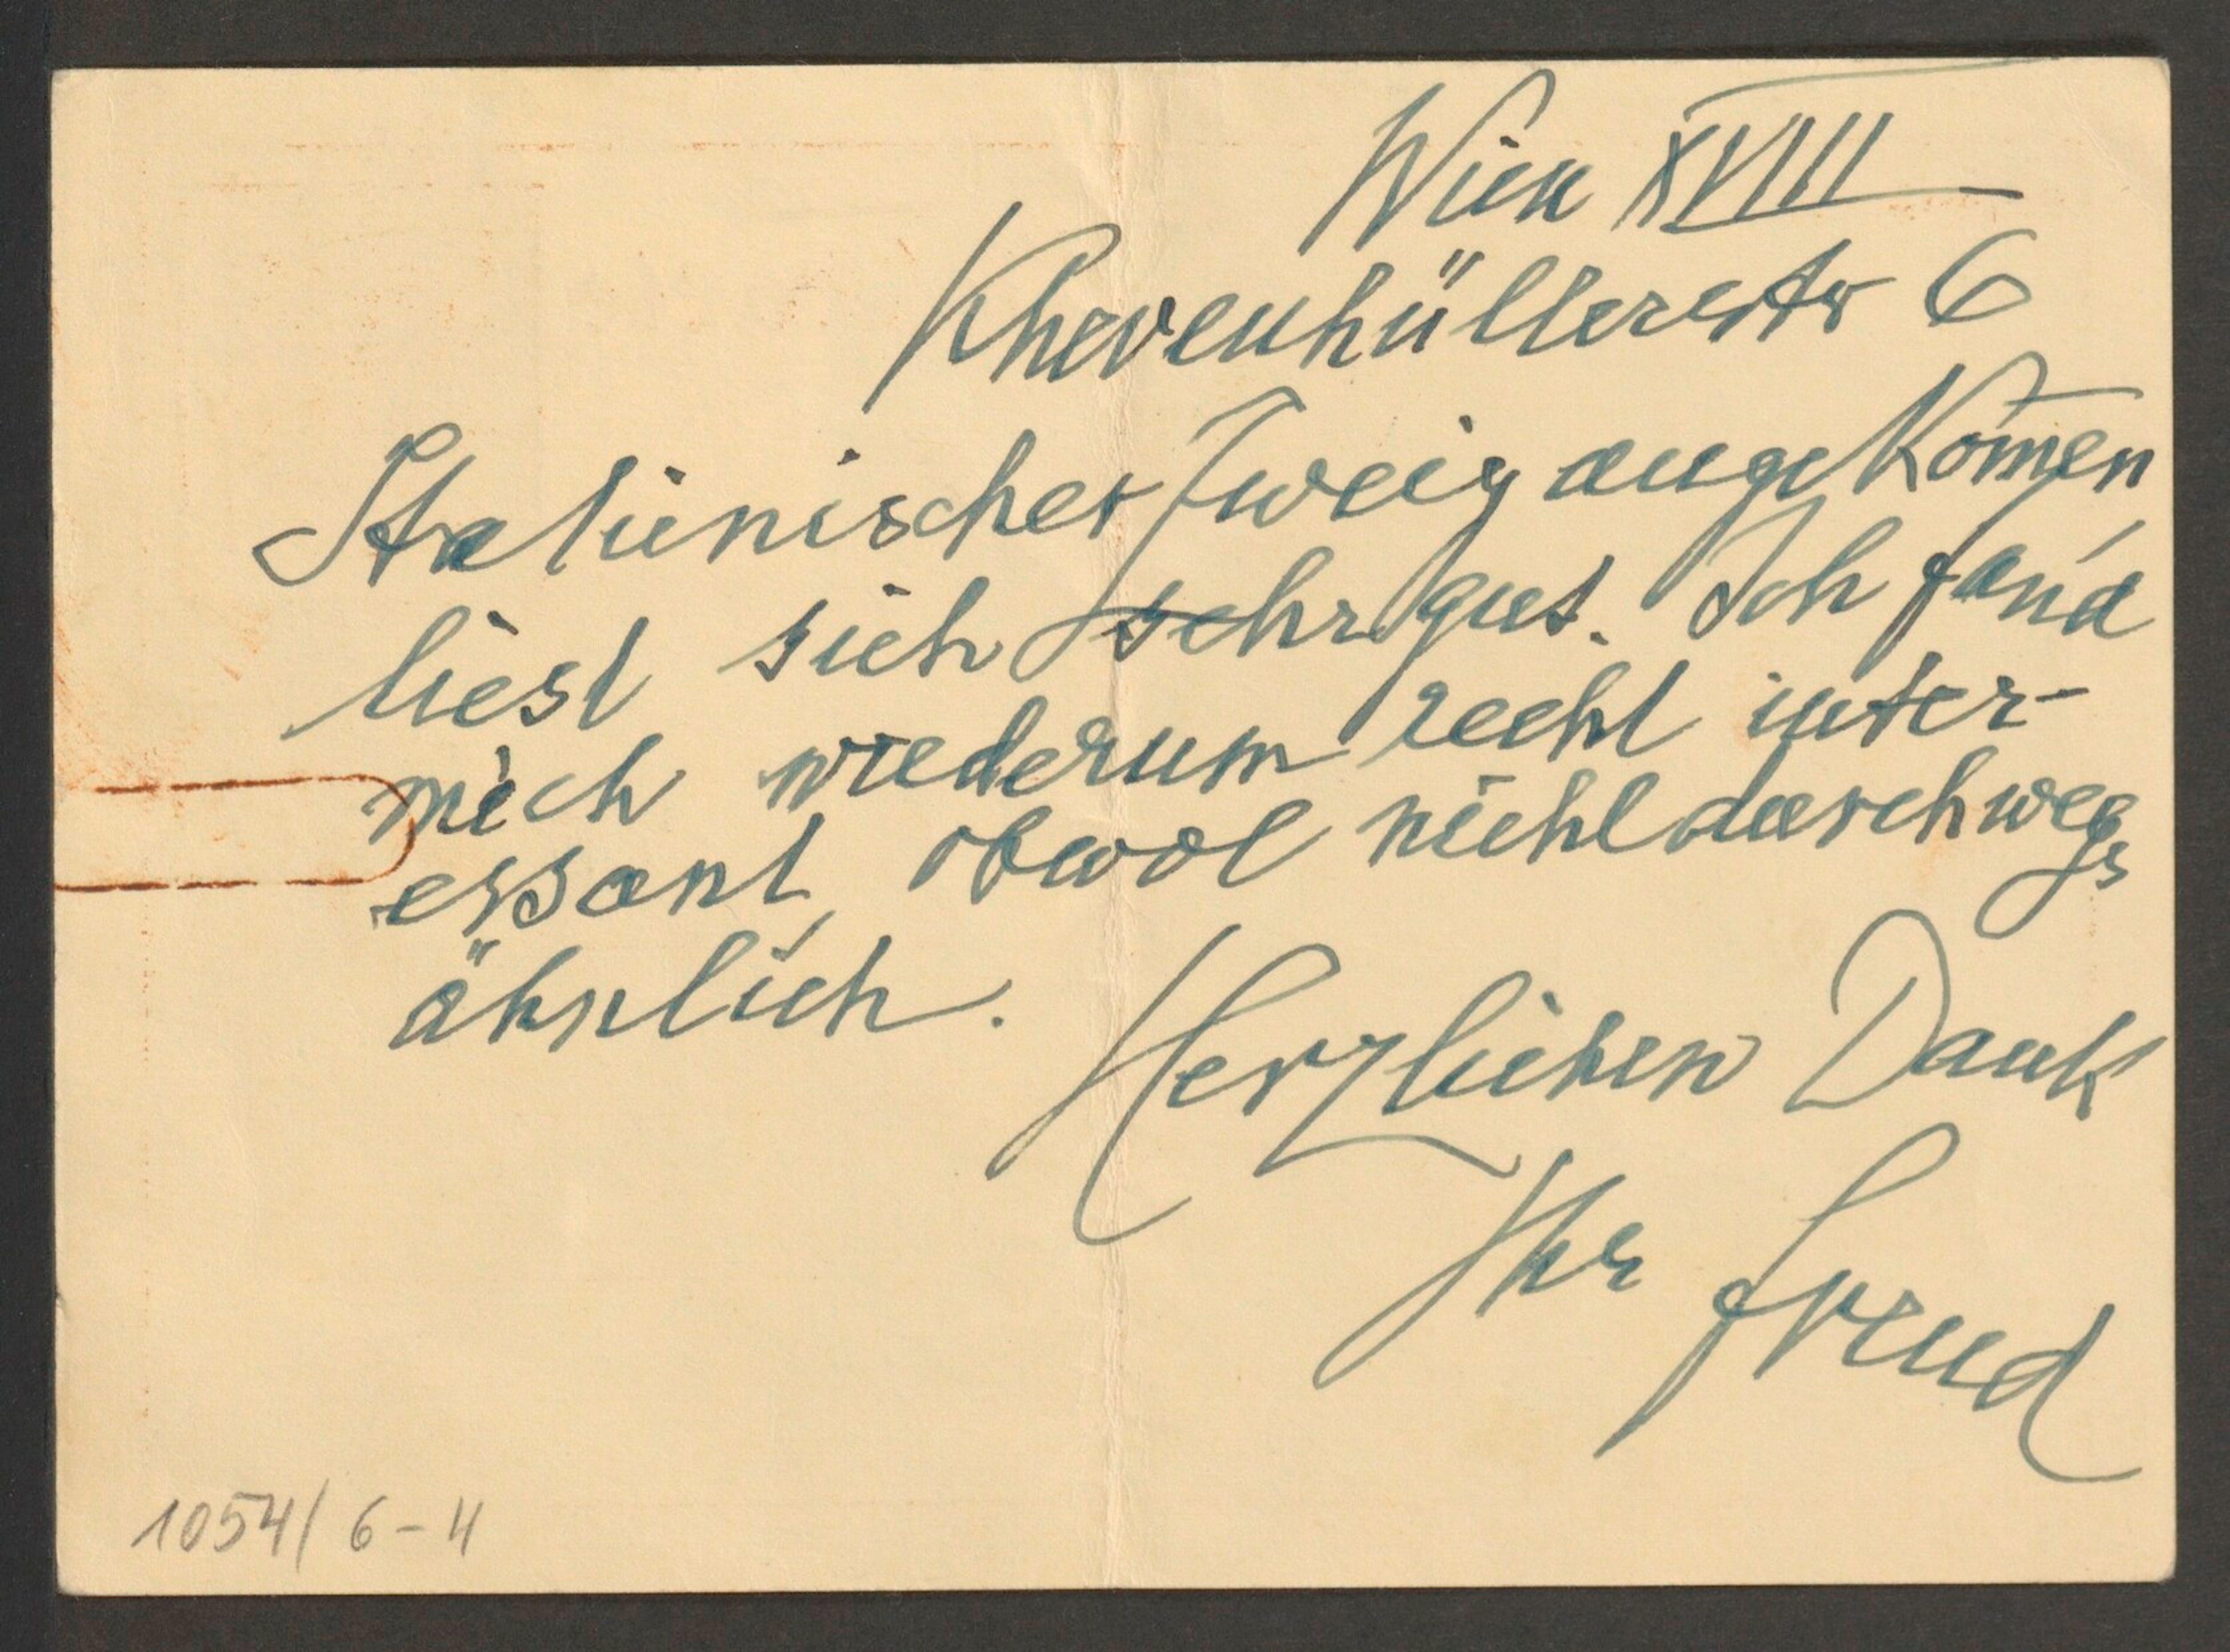 Wien XVIII
Khevenhüllerstr 6
Italienischer Zweig angekom̄en,
liest sich sehr gut. Ich fand
mich wiederum recht inter-
essant, obwol nicht durchwegs
ähnlich.
Herzlichen Dank
Ihr Freud
1054/6-4